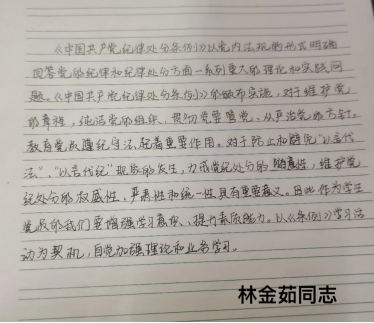 《中国共产党纪律处分条例》以党内法规的形式明确
回答党的纪律和纪律处分方面一系列重大的理论和实践问
题。《中国共产党纪律处分条例》的颁布实施，对于维护党
的章程，纯洁党的组织，贯彻党要管党、从严治党的方针，
教育党员遵纪守法，起着重要作用。对于防止和避免“以言代
法”、“以言代纪”现象的发生，力戒党纪处分的随意性，维护党
纪处分的权威性，严肃性和统一性具有重要意义。因此作为学生
党员的我们要增强学习意识，提升素质能力。以《条例》学习活
动为契机，自觉加强理论和业务学习。
林金茹同志